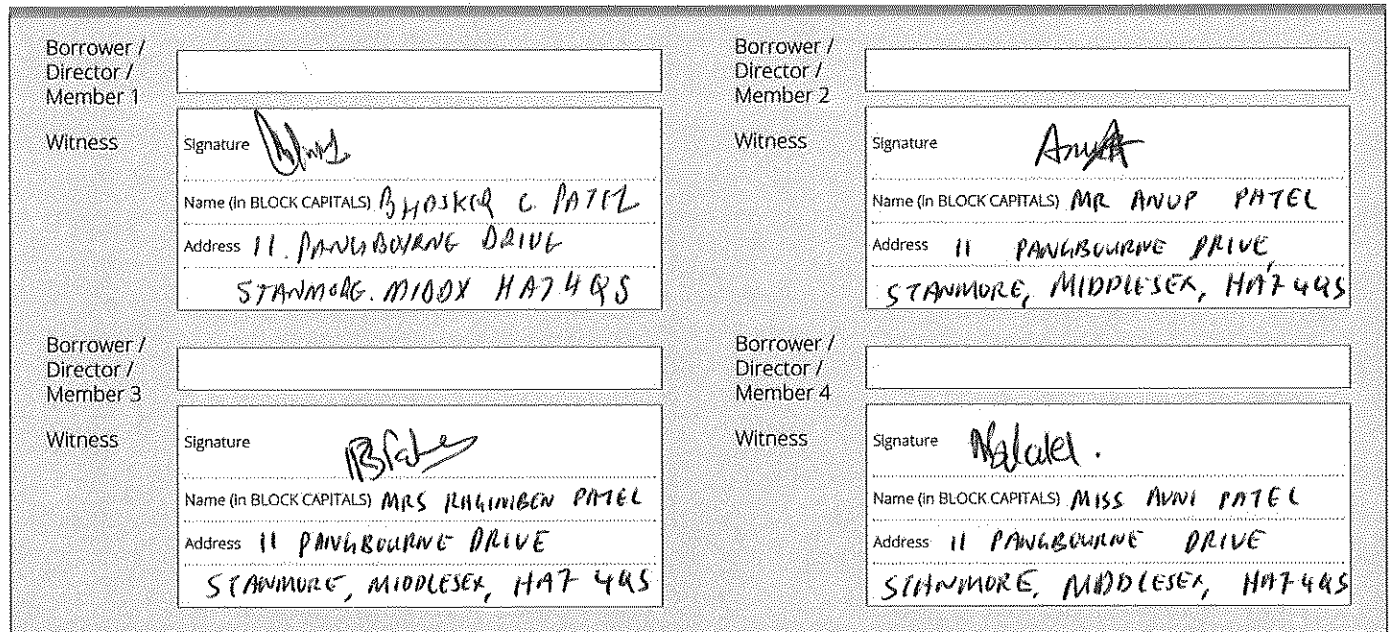 Borrower /
Director /
Member 1
Witness
Signature
Name (in BLOCK CAPITALS) BHASKER C. PATEL
Address 11. PANGBOURNE DRIVE
STANMORE. MIDDX HA7 4QS
Borrower /
Director /
Member 2
Witness
Signature
Name (in BLOCK CAPITALS) MR ANUP PATEL
Address 11 PANGBOURNE DRIVE
STANMORE, MIDDLESEX, HA7 4QS
Borrower /
Director /
Member 3
Witness
Signature
Name (in BLOCK CAPITALS) MRS RAGINIBEN PATEL
Address 11 PANGBOURNE DRIVE
STANMORE, MIDDLESEX, HA7 4QS
Borrower /
Director /
Member 4
Witness
Signature
Name (in BLOCK CAPITALS) MISS AVNI PATEL
Address 11 PANGBOURNE DRIVE
STANMORE, MIDDLESEX, HA7 4QS